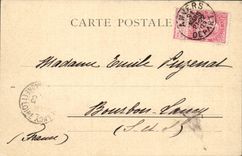 CARTE POSTALE
ANVERS
DEPART
Madame Emile Puzenat
Bourbon-Lancy
(S.-et-L.)
(France)